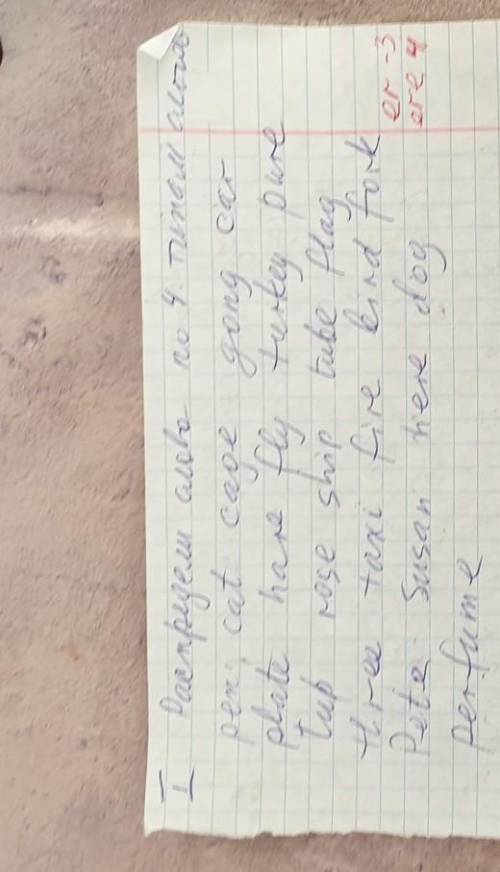 I Распредели слова по 4. типам слогов
pen cat cage gong car
plate hare fly turkey pure
tup rose ship tube flag
three taxi fire bird fork
Pete Susan here dog
perfume
er -3
ere 4